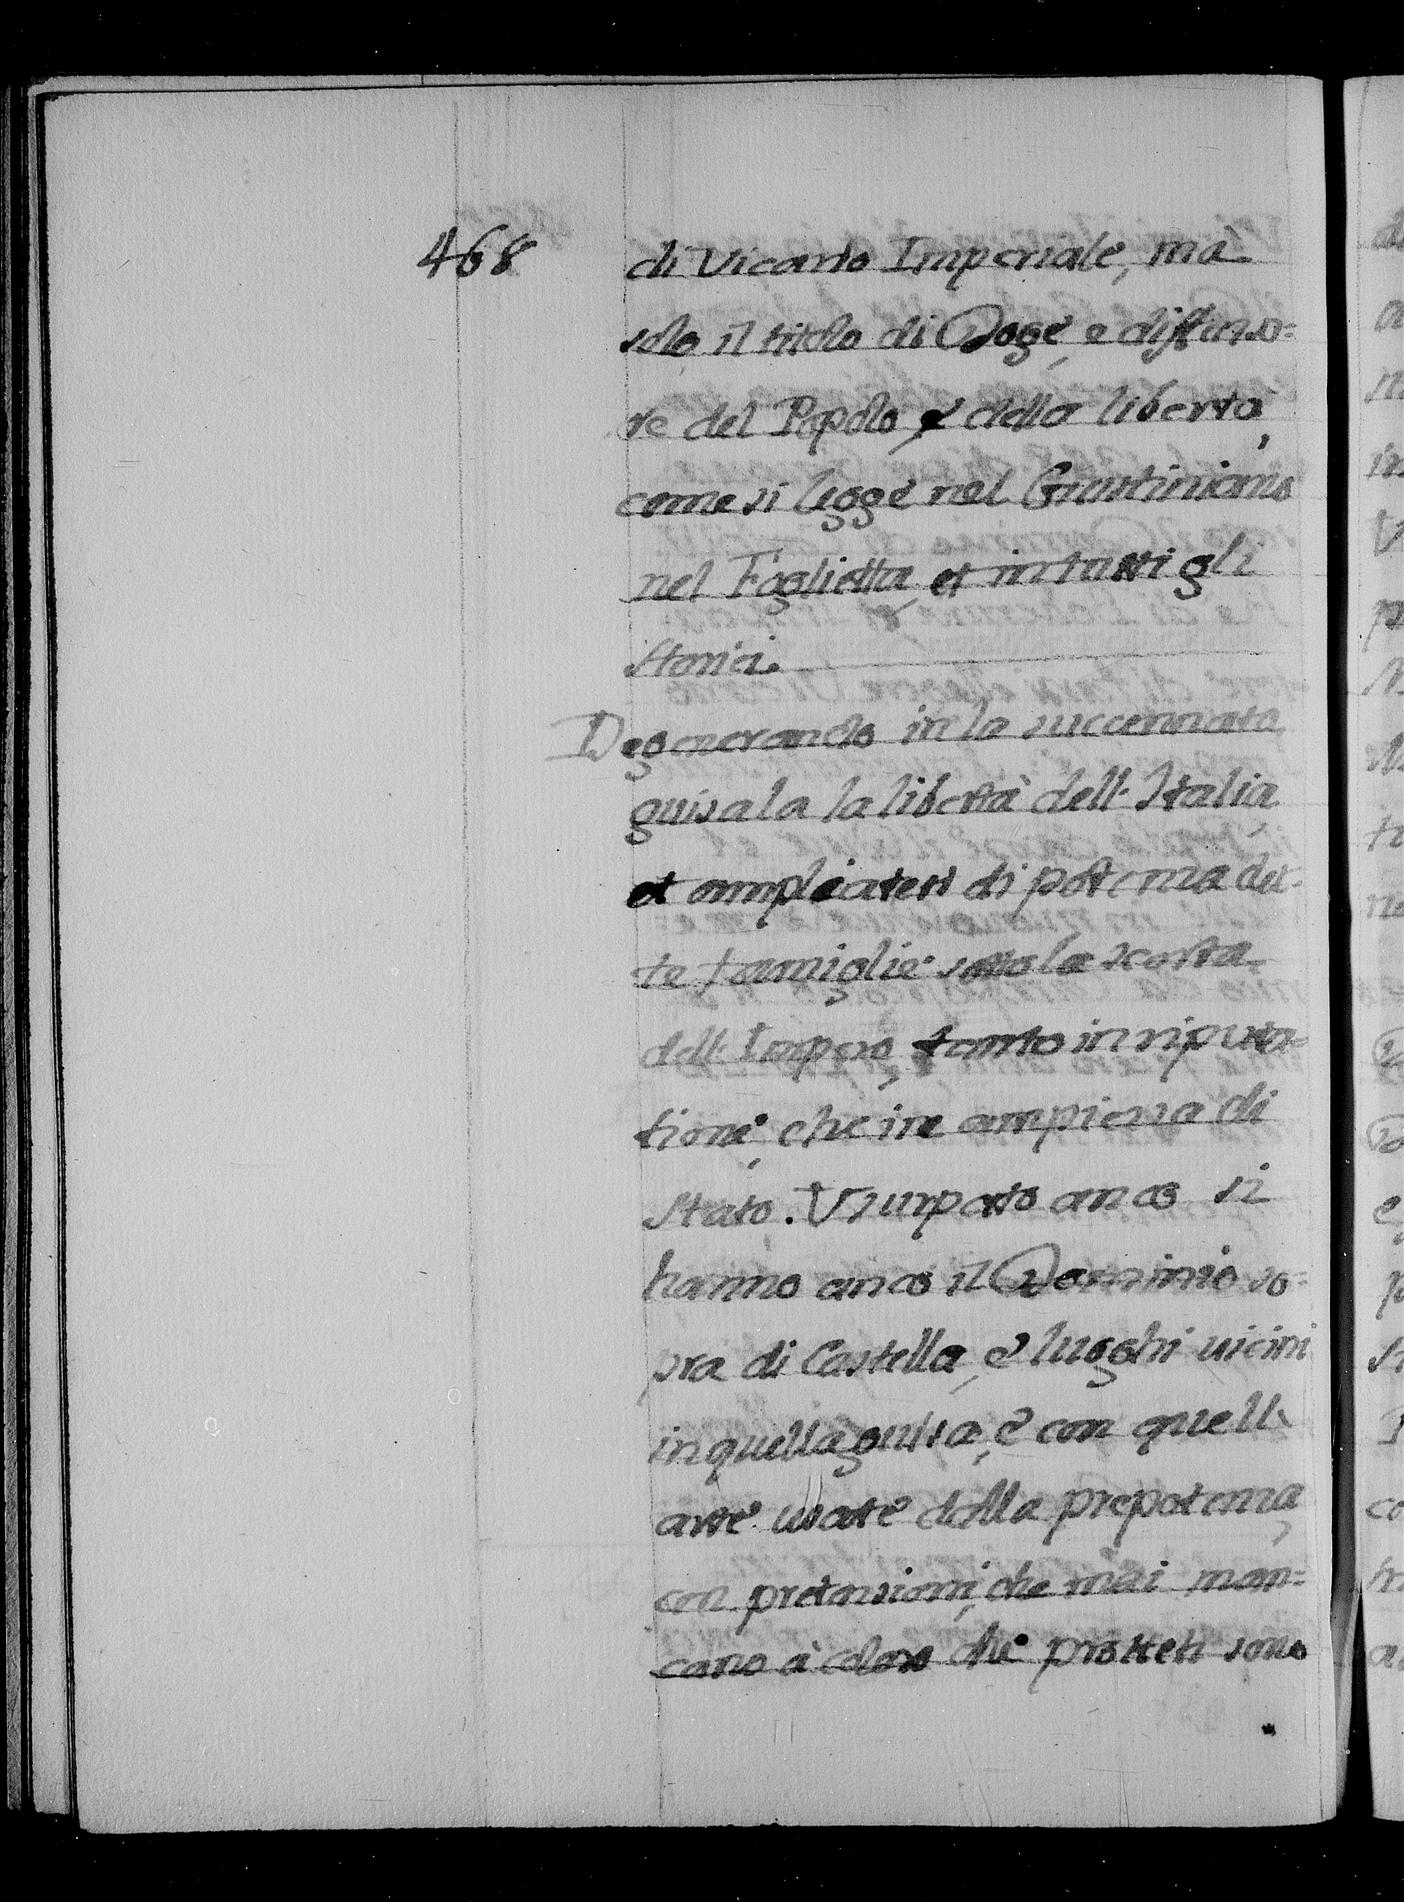 468
di Vicario Imperiale, mà
solo il titolo di Doge, e diffenso=
re del Popolo, e della libertà,
come si legge nel Giustiniano
nel Foglietta, et in tutti gli
storici.
Degenerando in la succennata
guisa la la libertà dell' Italia,
et ampliatesi di potenza det=
te famiglie sotto la scorta
dell' Impero, tanto in riputa=
tione, che in ampiezza di
stato. Usurpato anco si
hanno anco il Dominio so=
pra di Castella, e luoghi vicini
in quella guisa, e con quell'
arte usate dalla prepotenza,
con pretensioni, che mai man=
cano à coloro che protteti sono